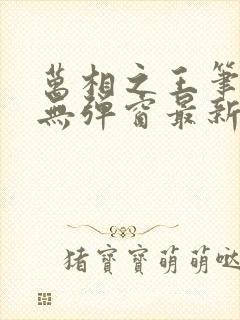 萬相之王筆
無彈窗最新
猪寶寶萌萌噠